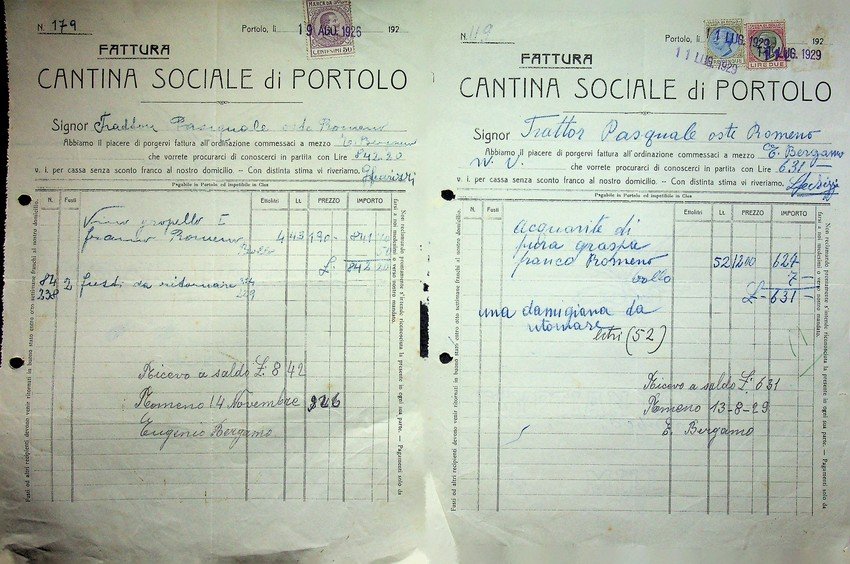 N. 179
Portolo, li 19 AGO. 1926 192
MARCA DA
CENTESIMI 50
FATTURA
CANTINA SOCIALE di PORTOLO
Signor Pasquale oste Romeno
Abbiamo il piacere di porgervi fattura all'ordinazione commessaci a mezzo
che vorrete procurarci di conoscerci in partita con Lire 842.20
v. i. per cassa senza sconto franco al nostro domicilio. - Con distinta stima vi riveriamo.
Pagabile in Portolo ed impetibile in Cles
N. Fusti Ettolitri Lt. PREZZO IMPORTO
Vino gropello I
franco Romeno 4 43 190
bollo
£ 842
84 2 fusti da ritornare
238
Ricevo a saldo £. 842
Romeno 14 Novembre 926
Eugenio Bergamo
Fusti ed altri recipienti devono venir ritornati in buono stato entro otto settimane franchi al nostro domicilio.
Non reclamando prontamente s'intende riconosciuta la presente in ogni sua parte. — Pagamenti solo da
farsi a noi medesimi o verso nostro mandato.
N. 119
Portolo, li 11 LUG. 1929 192
11 LUG. 1929
LUG. 1929
LIRE DUE
FATTURA
CANTINA SOCIALE di PORTOLO
Signor Trattor Pasquale oste Romeno
Abbiamo il piacere di porgervi fattura all'ordinazione commessaci a mezzo E. Bergamo
che vorrete procurarci di conoscerci in partita con Lire 631
v. i. per cassa senza sconto franco al nostro domicilio. - Con distinta stima vi riveriamo.
Pagabile in Portolo ed impetibile in Cles
N. Fusti Ettolitri Lt. PREZZO IMPORTO
Acquavite di
pura graspe
franco Romeno 52 1200 624
bollo 7 -
£ - 631 -
una damigiana da
ritornare
litri (52)
Ricevo a saldo £. 631
Romeno 13-8-29
E. Bergamo
Fusti ed altri recipienti devono venir ritornati in buono stato entro otto settimane franchi al nostro domicilio.
Non reclamando prontamente s'intende riconosciuta la presente in ogni sua parte. — Pagamenti solo da
farsi a noi medesimi o verso nostro mandato.